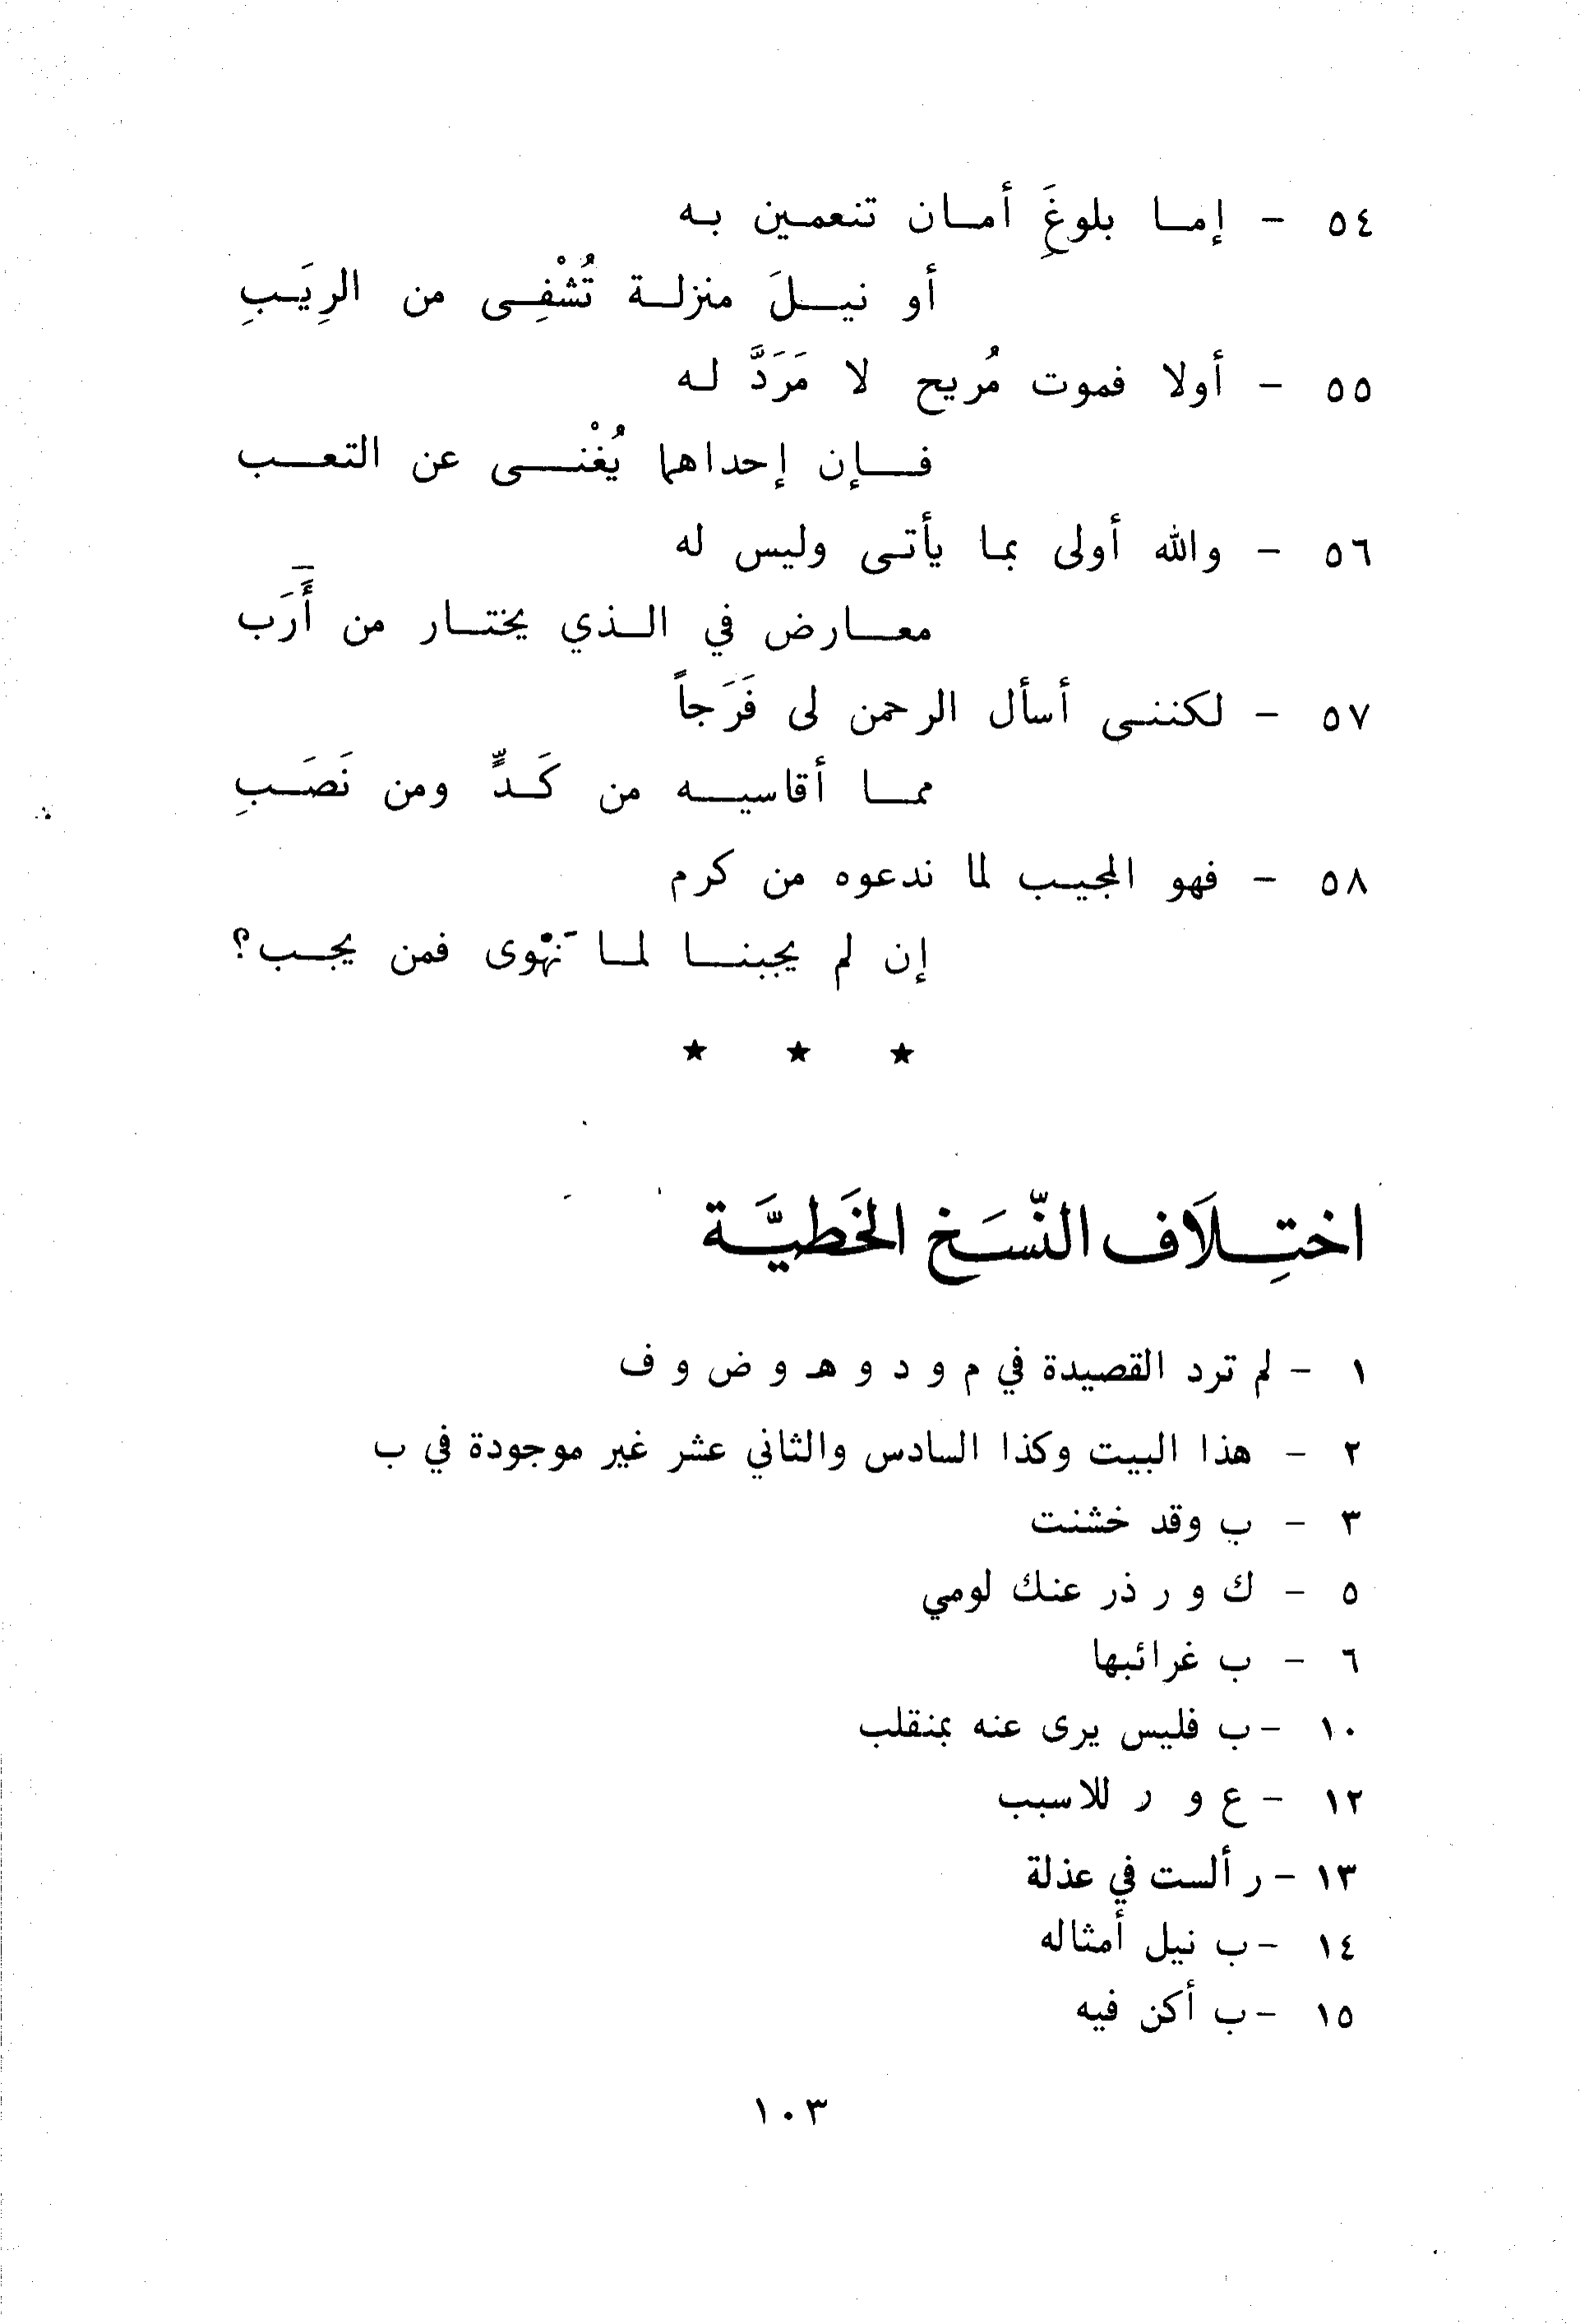 ٥٤ - إما بلوغَِ أمان تنعمين به
أو نيلَ منزلة تُشْفِى من الرِيَبِ
٥٥ - أولا فموت مُريح لا مَرَدَّ له
فإن إحداهما يُغْنى عن التعب
٥٦ - والله أولى بما يأتى وليس له
معارض في الذي يختار من أَرَب
٥٧ - لكننى أسأل الرحمن لى فَرَجاً
مما أقاسيه من كَدٍّ ومن نَصَبِ
٥٨ - فهو المجيب لما ندعوه من كرم
إن لم يجبنا لما نَهْوى فمن يجب؟
★ ★ ★
اختِلَاف النّسَخ الخَطيَّة
١ - لم ترد القصيدة في م و د و هـ و ض و ف
٢ - هذا البيت وكذا السادس والثاني عشر غير موجودة في ب
٣ - ب وقد خشنت
٥ - ك و ر ذر عنك لومي
٦ - ب غرائبها
١٠ - ب فليس يرى عنه بمنقلب
١٢ - ع و ر للاسبب
١٣ - ر ألست في عذلة
١٤ - ب نيل أمثاله
١٥ - ب أكن فيه
١٠٣